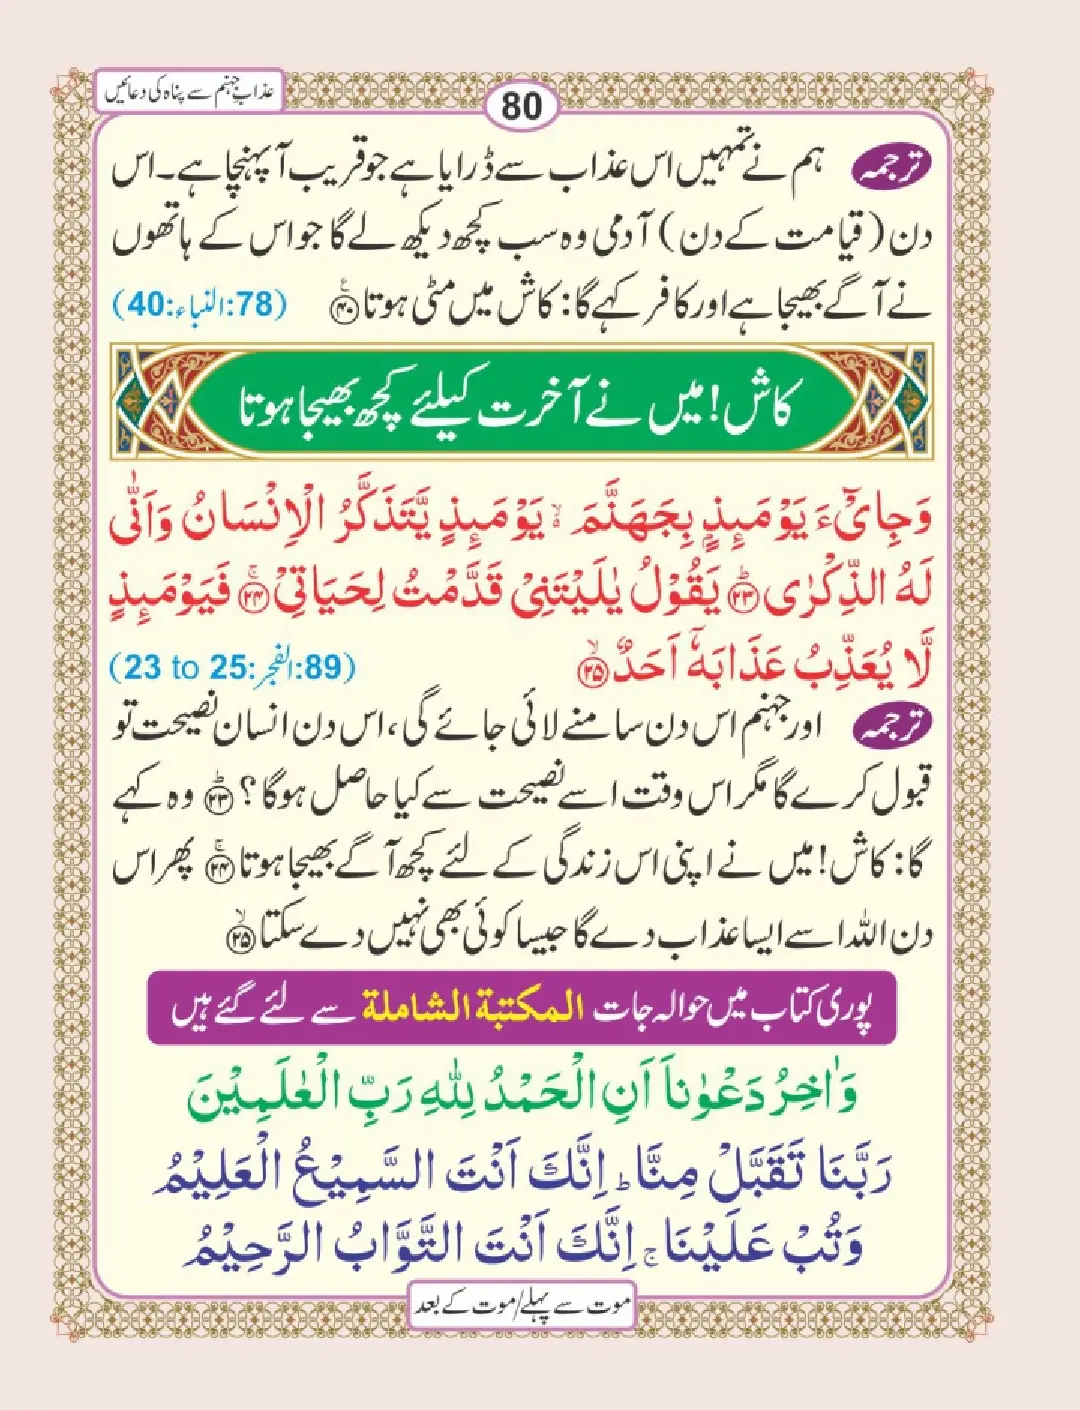 عذابِ جہنم سے پناہ کی دعائیں
80
ترجمہ ہم نے تمہیں اس عذاب سے ڈرایا ہے جو قریب آ پہنچا ہے۔ اس
دن (قیامت کے دن) آدمی وہ سب کچھ دیکھ لے گا جو اس کے ہاتھوں
نے آگے بھیجا ہے اور کافر کہے گا: کاش میں مٹی ہوتا ۝۴۰ۧ (78:النباء:40)
کاش! میں نے آخرت کیلئے کچھ بھیجا ہوتا
وَجِایْٓءَ یَوْمَىِٕذٍۭ بِجَهَنَّمَ ۙ۬ یَوْمَىِٕذٍ یَّتَذَكَّرُ الْاِنْسَانُ وَاَنّٰى
لَهُ الذِّكْرٰى ۝۲۳ؕ یَقُوْلُ یٰلَیْتَنِیْ قَدَّمْتُ لِحَیَاتِیْ ۝۲۴ۚ فَیَوْمَىِٕذٍ
لَّا یُعَذِّبُ عَذَابَهٗۤ اَحَدٌ ۝۲۵ۙ (89:الفجر:23 to 25)
ترجمہ اور جہنم اس دن سامنے لائی جائے گی، اس دن انسان نصیحت تو
قبول کرے گا مگر اس وقت اسے نصیحت سے کیا حاصل ہوگا؟ ۝۲۳ؕ وہ کہے
گا: کاش! میں نے اپنی اس زندگی کے لئے کچھ آگے بھیجا ہوتا ۝۲۴ۚ پھر اس
دن اللہ اسے ایسا عذاب دے گا جیسا کوئی بھی نہیں دے سکتا ۝۲۵ۙ
پوری کتاب میں حوالہ جات المكتبة الشاملة سے لئے گئے ہیں
وَاٰخِرُ دَعْوٰناَ اَنِ الْحَمْدُ لِلّٰهِ رَبِّ الْعٰلَمِیْنَ
رَبَّنَا تَقَبَّلْ مِنَّا ؕ اِنَّكَ اَنْتَ السَّمِیْعُ الْعَلِیْمُ
وَتُبْ عَلَیْنَا ۚ اِنَّكَ اَنْتَ التَّوَّابُ الرَّحِیْمُ
موت سے پہلے/موت کے بعد